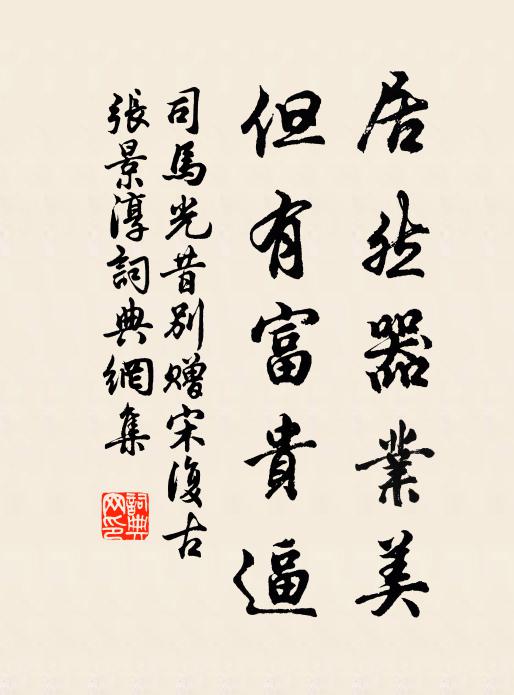 居然器業美
但有富貴逼
司馬光昔別贈宋復古
張景淳詞典網集
詞典
网印